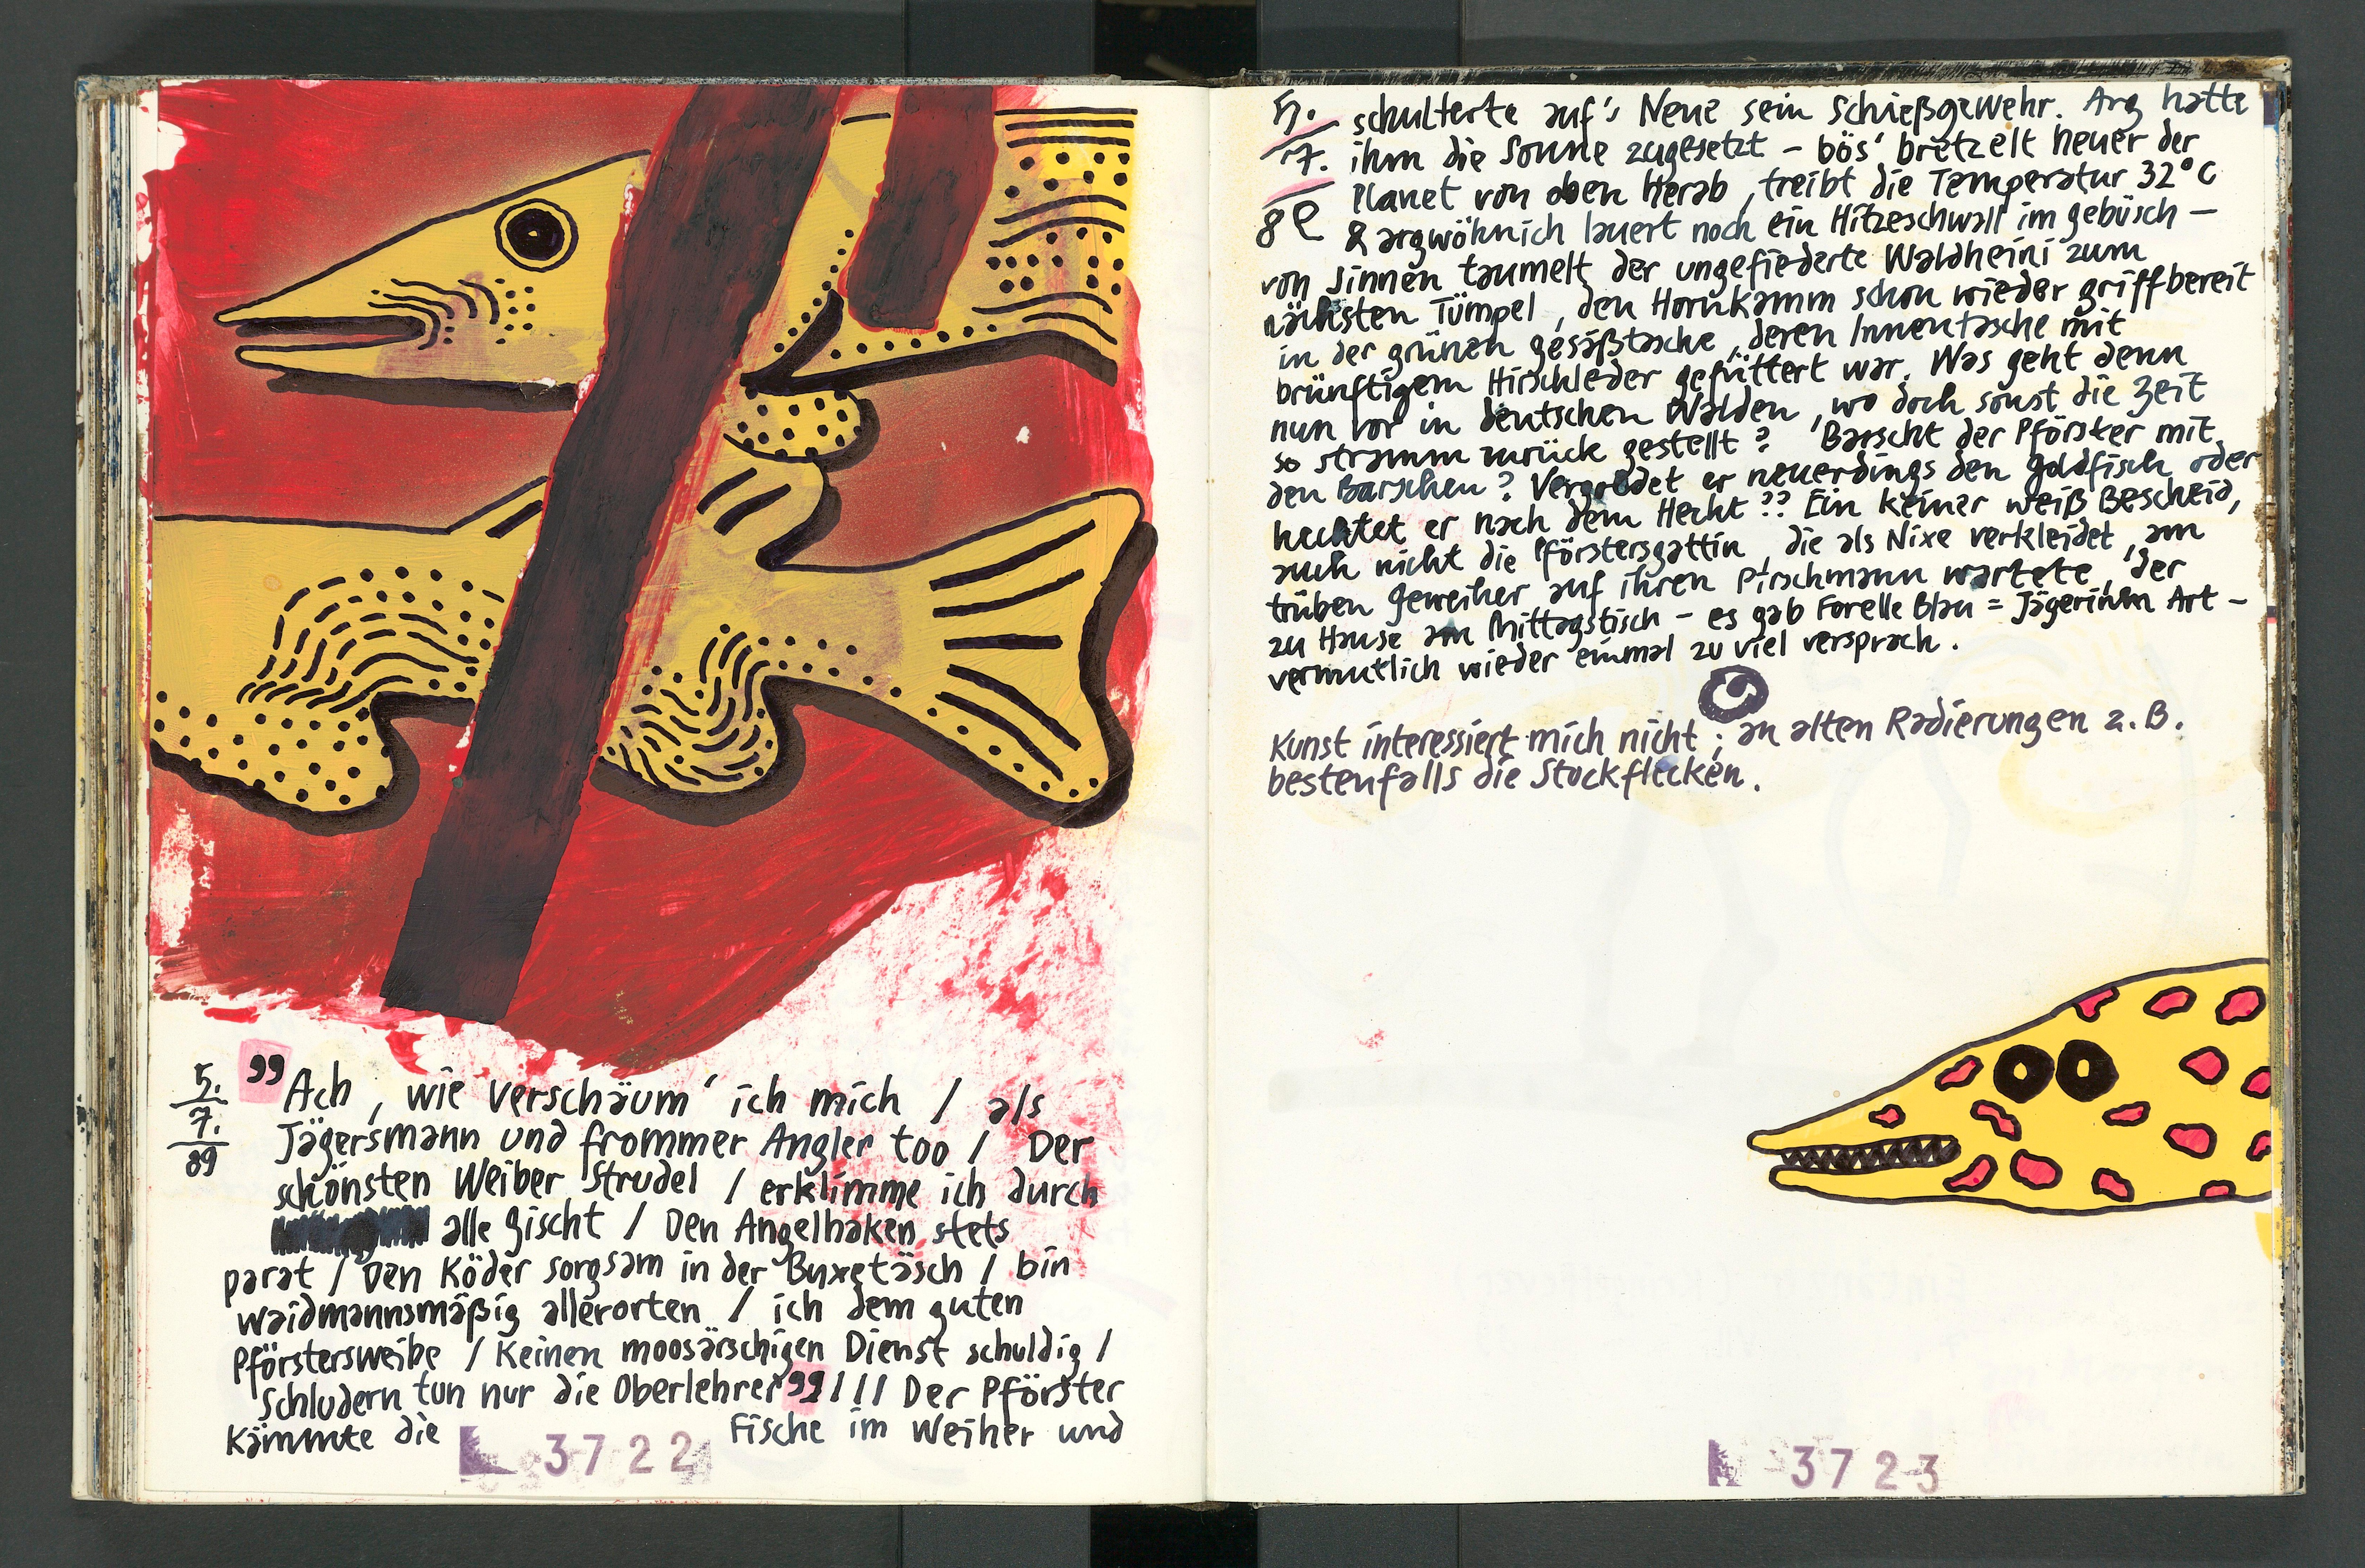 5.
7.
89
"Ach, wie verschäum' ich mich / als
Jägersmann und frommer Angler too / Der
schönsten Weiber Strudel / erklimme ich durch
alle Gischt / Den Angelhaken stets
parat / Den Köder sorgsam in der Buxetäsch / bin
waidmannsmäßig allerorten / ich dem guten
Pförstersweibe / Keinen moosärschigen Dienst schuldig /
Schludern tun nur die Oberlehrer" / / / Der Pförster
Kämmte die Fische im Weiher und
3722
5.
7.
89
schulterte auf's Neue sein Schießgewehr. Arg hatte
ihm die Sonne zugesetzt – bös' bretzelt heuer der
Planet von oben herab, treibt die Temperatur 32°C
& argwöhnich lauert noch ein Hitzeschwall im Gebüsch –
von Sinnen taumelt der ungefiederte Waldheini zum
nächsten Tümpel, den Hornkamm schon wieder griffbereit
in der grünen Gesäßtasche, deren Innentasche mit
brünftigem Hirschleder gefüttert war. Was geht denn
nun vor in deutschen Walden, wo doch sonst die Zeit
so stramm zurück gestellt? Barscht der Pförster mit
den Barschen? Vergoldet er neuerdings den Goldfisch oder
hechtet er nach dem Hecht?? Ein keiner weiß Bescheid,
auch nicht die Pförstersgattin, die als Nixe verkleidet, am
trüben Geweiher auf ihren Pirschmann wartete, der
zu Hause am Mittagstisch – es gab Forelle Blau = Jägerinnen Art –
vermutlich wieder einmal zu viel versprach.
Kunst interessiert mich nicht; an alten Radierungen z.B.
bestenfalls die Stockflecken.
3723